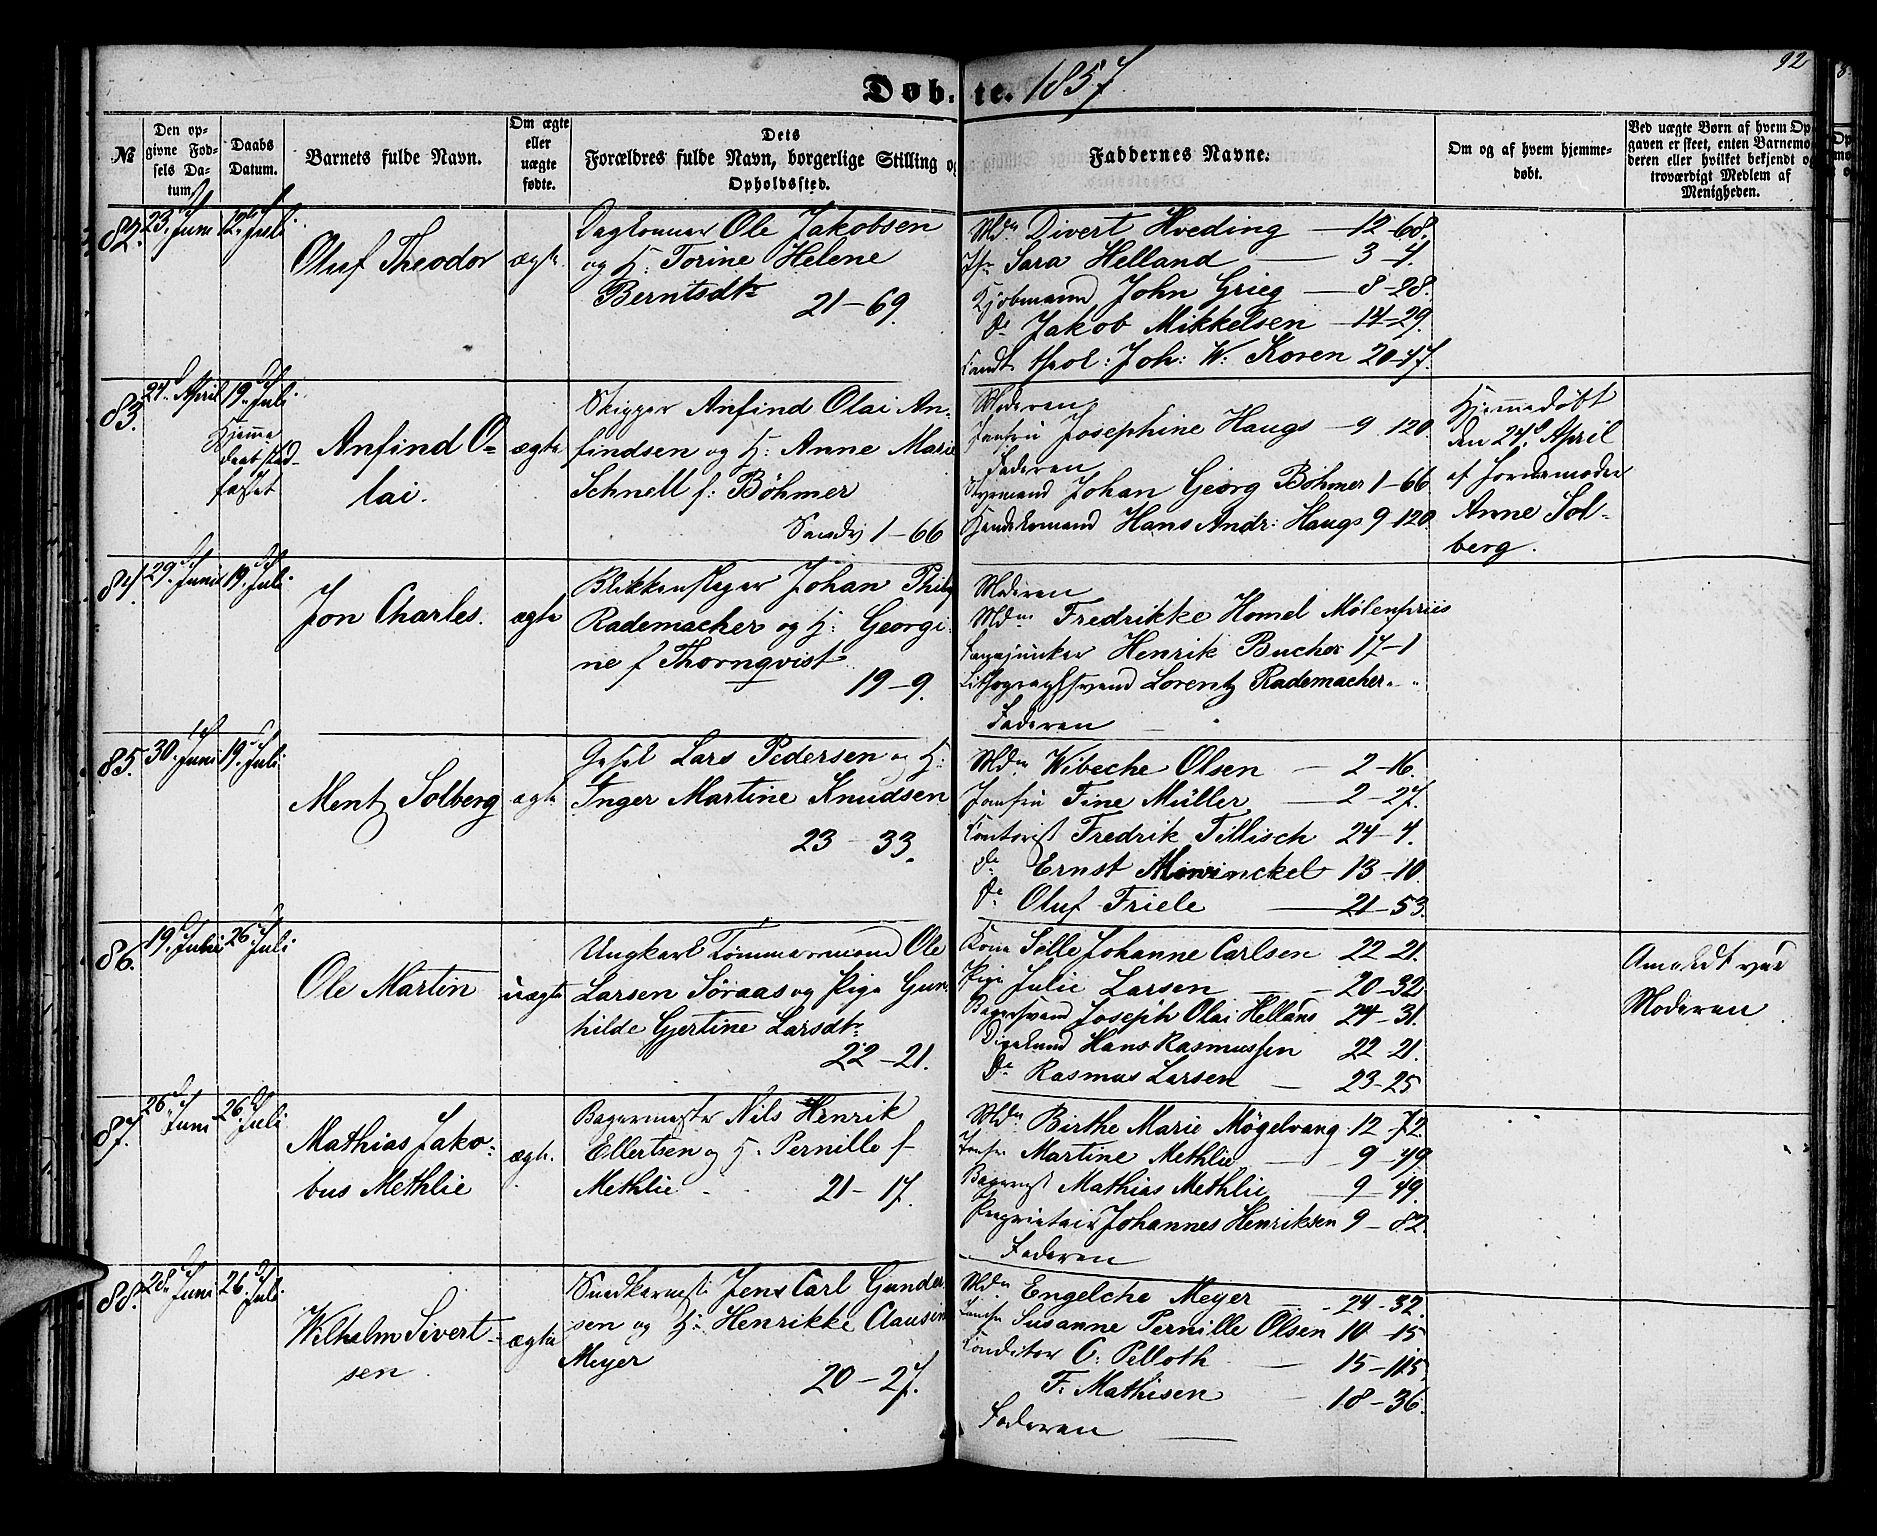 92
Døbte. 1857.
№
Den opgivne Fødsels Datum.
Daabs Datum.
Barnets fulde Navn.
Om ægte eller uægte fødte.
Dets Forældres fulde Navn, borgerlige Stilling og Opholdssted.
Faddernes Navne.
Om og af hvem hjemmedøbt.
Ved uægte Børn af hvem Opgaven er skeet, enten Barnemoderen eller hvilket bekjendt og troværdigt Medlem af Menigheden.
82.
23. Juni
12. Juli
Oluf Theodor
ægte
Ole Jakobsen
og H: Torine Helene
Berntsdtr
21-69.
Mdm Divert Hveding - 12-68.
Jfr Sara Helland - 3-4
Kjøbmand John Grieg - 8-28.
do Jakob Mikkelsen - 14-29.
Candt. theol: Joh: W: Koren 20-47.
83.
24. April
19. Juli
Hjemmedaab stadfæstet
Anfind O=
lai.
ægte
Skipper Anfind Olai An=
findsen og H: Anne Marie
Schnell f: Böhmer
Sandv 1-66
Moderen
Jomfru Josephine Haugs - 9 120.
Faderen
Styrmand Johan Georg Böhmer 1-66
Handelsmand Hans Andr: Haugs 9-120.
Hjemmedøbt
den 24. April
af Jordemoder
Anne Sol=
berg.
84.
29. Juni
19. Juli
Jon Charles.
ægte
Blikkenslager Johan Philip
Rademacher og H: Georgi
ne f Thornqvist
19-9.
Moderen
Mdm Fredrikke Homel Mølenpriis
Fanejunker Henrik Bucher 17-1
Lithographsvend Lorentz Rademacher " "
Faderen
85.
30. Juni
19. Juli
Mentz Solberg
ægte
Lars Pedersen og H:
Inger Martine Knudsen
23-33.
Mdm Wibeche Olsen - 2-16.
Jomfru Fine Müller - 2-27.
Contorist Fredrik Tillisch 24-4.
do Ernst Mowinckel 13-10.
do Oluf Friele - 21-53.
86.
19. Juni
26. Juli
Ole Martin
uægte
Ungkarl Tømmermand Ole
Larsen Søraas og Pige Gun
hilde Gjertine Larsdtr
22-21.
Kone Sille Johanne Carlsen 22-21.
Pige Julie Larsen - 20-32
Bagersvend Joseph Olai Hellans 24-31.
Hans Rasmussen 22-21.
do Rasmus Larsen - 23-25
Anmeldt ved
Moderen
87.
26. Juni
26. Juli
Mathias Jako=
bus Methlie
ægte.
Bagermester Nils Henrik
Ellertsen og H. Pernille f
Methlie 21-17.
Mdm Birthe Marie Møgelvang 12-72.
Jomfr Martine Methlie - 9-49.
Bagermst Mathias Methlie 9-49.
Proprietair Johannes Henriksen 9-82.
Faderen
88.
28. Juni
26. Juli
Wilhelm Sivert=
sen.
ægte
Snedkermestr Jens Carl Gunder
sen og H: Henrikke Clausine
Meyer
20-27.
Mdm Engelche Meyer - 24-32.
Jomfr Susanne Pernille Olsen 10-15
Conditor C: Pelloth - 15-115.
F: Mathisen - 18-36.
Faderen